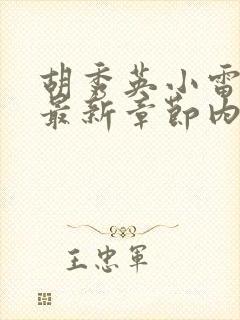 胡秀英小雷
最新章节内
王忠军